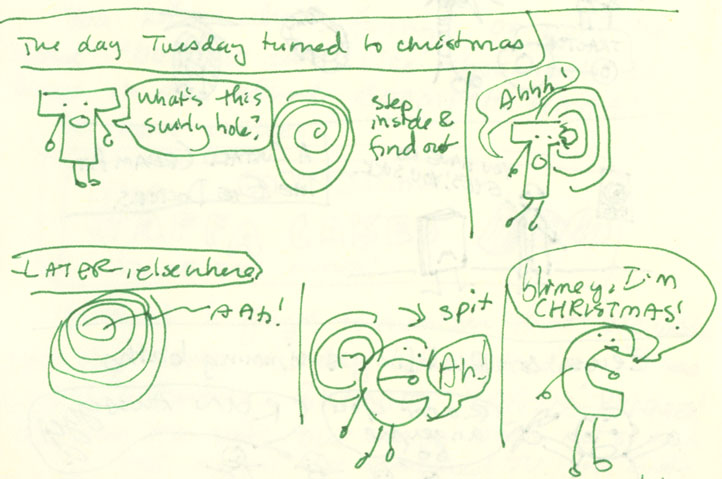 The day Tuesday turned to christmas
What's this
swirly hole?
step
inside &
find out
Ahhh!
LATER, elsewhere
AAh!
spit
Ah!
blimey, I'm
CHRISTMAS!